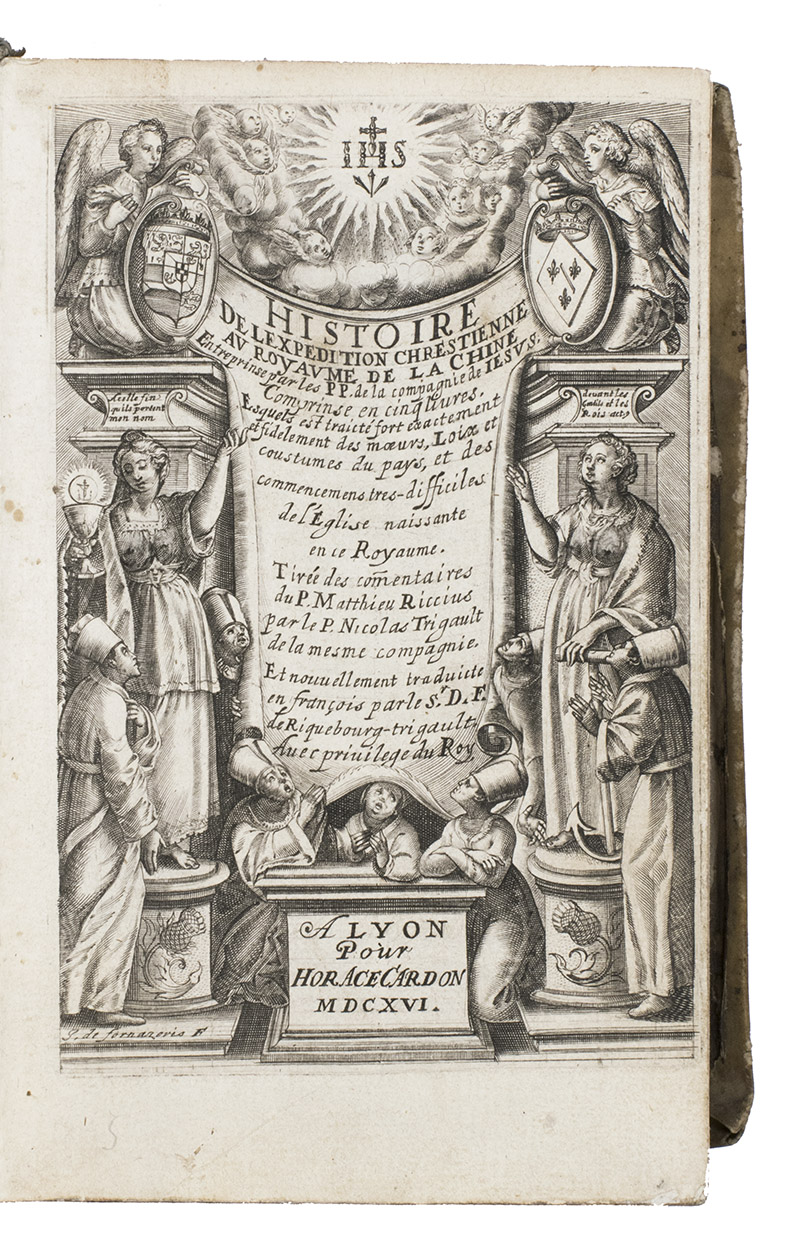 IHS
HISTOIRE
DE L'EXPEDITION CHRESTIENNE
AV ROYAVME DE LA CHINE
Entreprinse par les PP. de la compagnie de IESVS.
Comprinse en cinq liures.
Esquels est traicté fort exactement
et fidelement des mœurs, Loix et
coustumes du pays, et des
commencemens tres-difficiles
de l'Eglise naissante
en ce Royaume.
Tirée des cōmentaires
du P. Matthieu Riccius
par le P. Nicolas Trigault
de la mesme compagnie.
Et nouuellement traduicte
en françois par le Sr. D. F.
de Riquebourg-trigault.
Auec priuilege du Roy
Acelle fin
qu'ils portent
mon nom
deuant les
Gentils et les
Rois act. 9
A LYON
Pour
HORACE CARDON
MDCXVI.
J. de fornazeris F